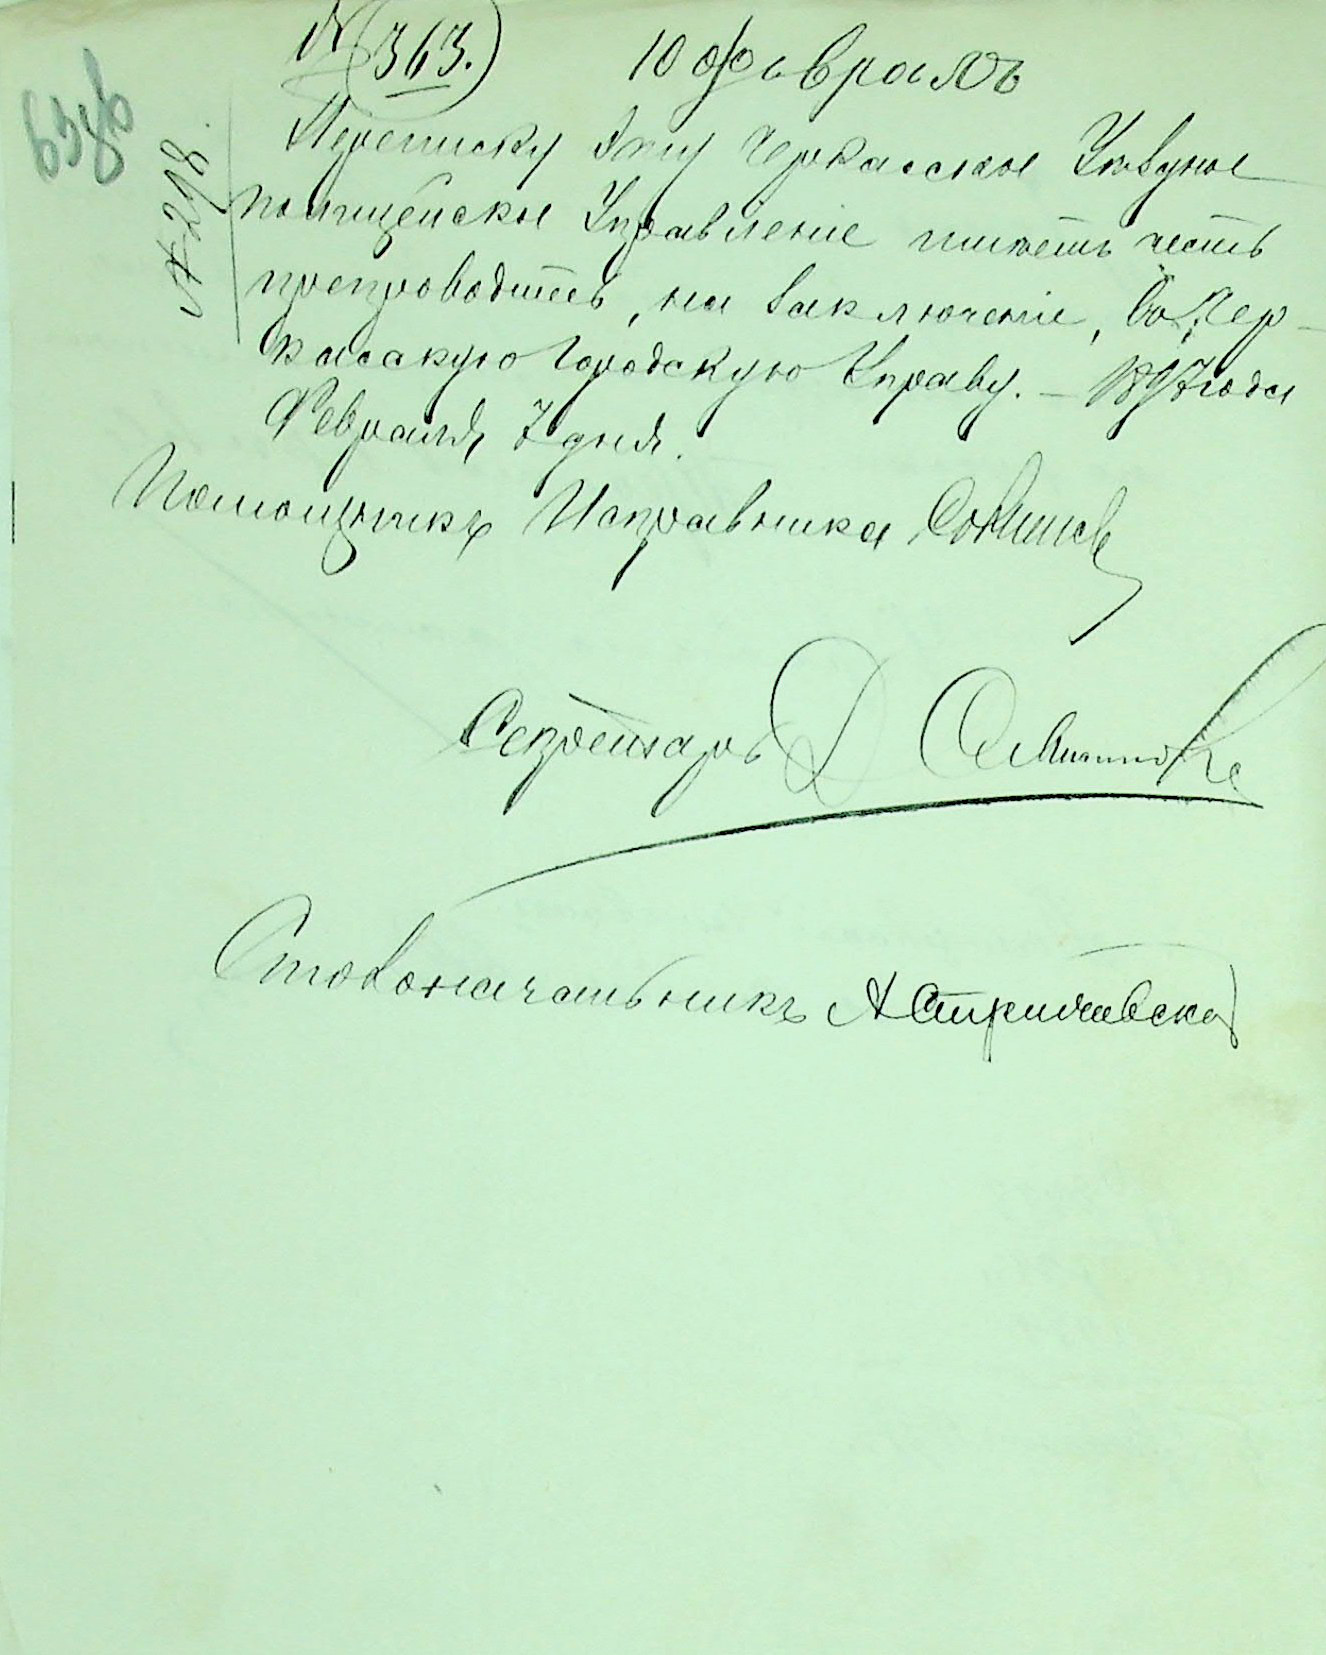 № 363.) 10 февраля
№ 298.
Переписку эту Черкасское Уѣздное
полицейское Управленіе имѣетъ честь
препроводить, на заключеніе, въ Чер-
касскую Городскую Управу. — 1897 года
Февраля 7 дня.
Помощникъ Исправника
Секретарь
Столоначальникъ А